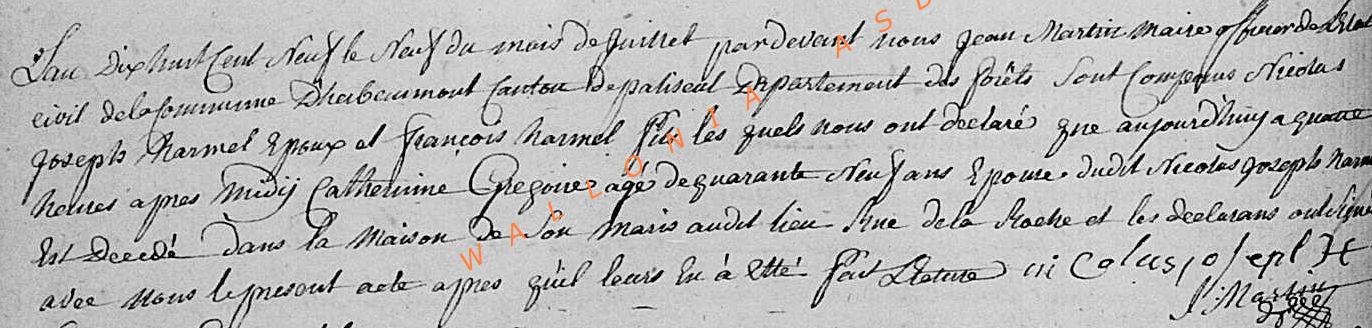 L'an Dixhuit Cent Neuf le Neuf du mois de Juillet pardevant nous jean Martin Maire officier de L'Etat
civil de la Commune D'herbeumont Canton de paliseul Departement des forêts Sont Comparus Nicolas
joseph harmel Epoux et françois harmel fils les quels nous ont declaré que aujourd'huy a quatre
heures apres Midij Catherinne Gregoire agé de quarante Neuf ans Epouse dudit Nicolas joseph harm
Est Decedé dans la Maison de Son Maris audit lieu Rue de la Roche et les declarans ont signé
avec nous le present acte apres qu'il leurs En à Etté fait Lecture ni Colas joseph H
J: Martin
WALLONIA ASD